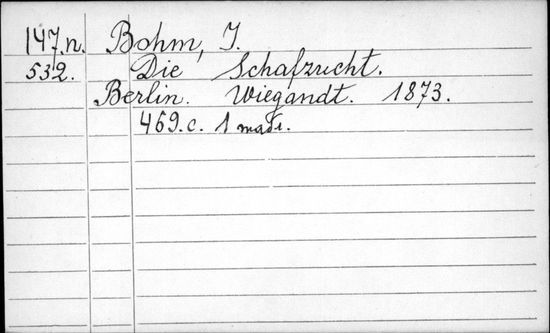 147.n. Bohm, J.
532. Die Schafzucht.
Berlin. Wiegandt. 1873.
469.c. 1